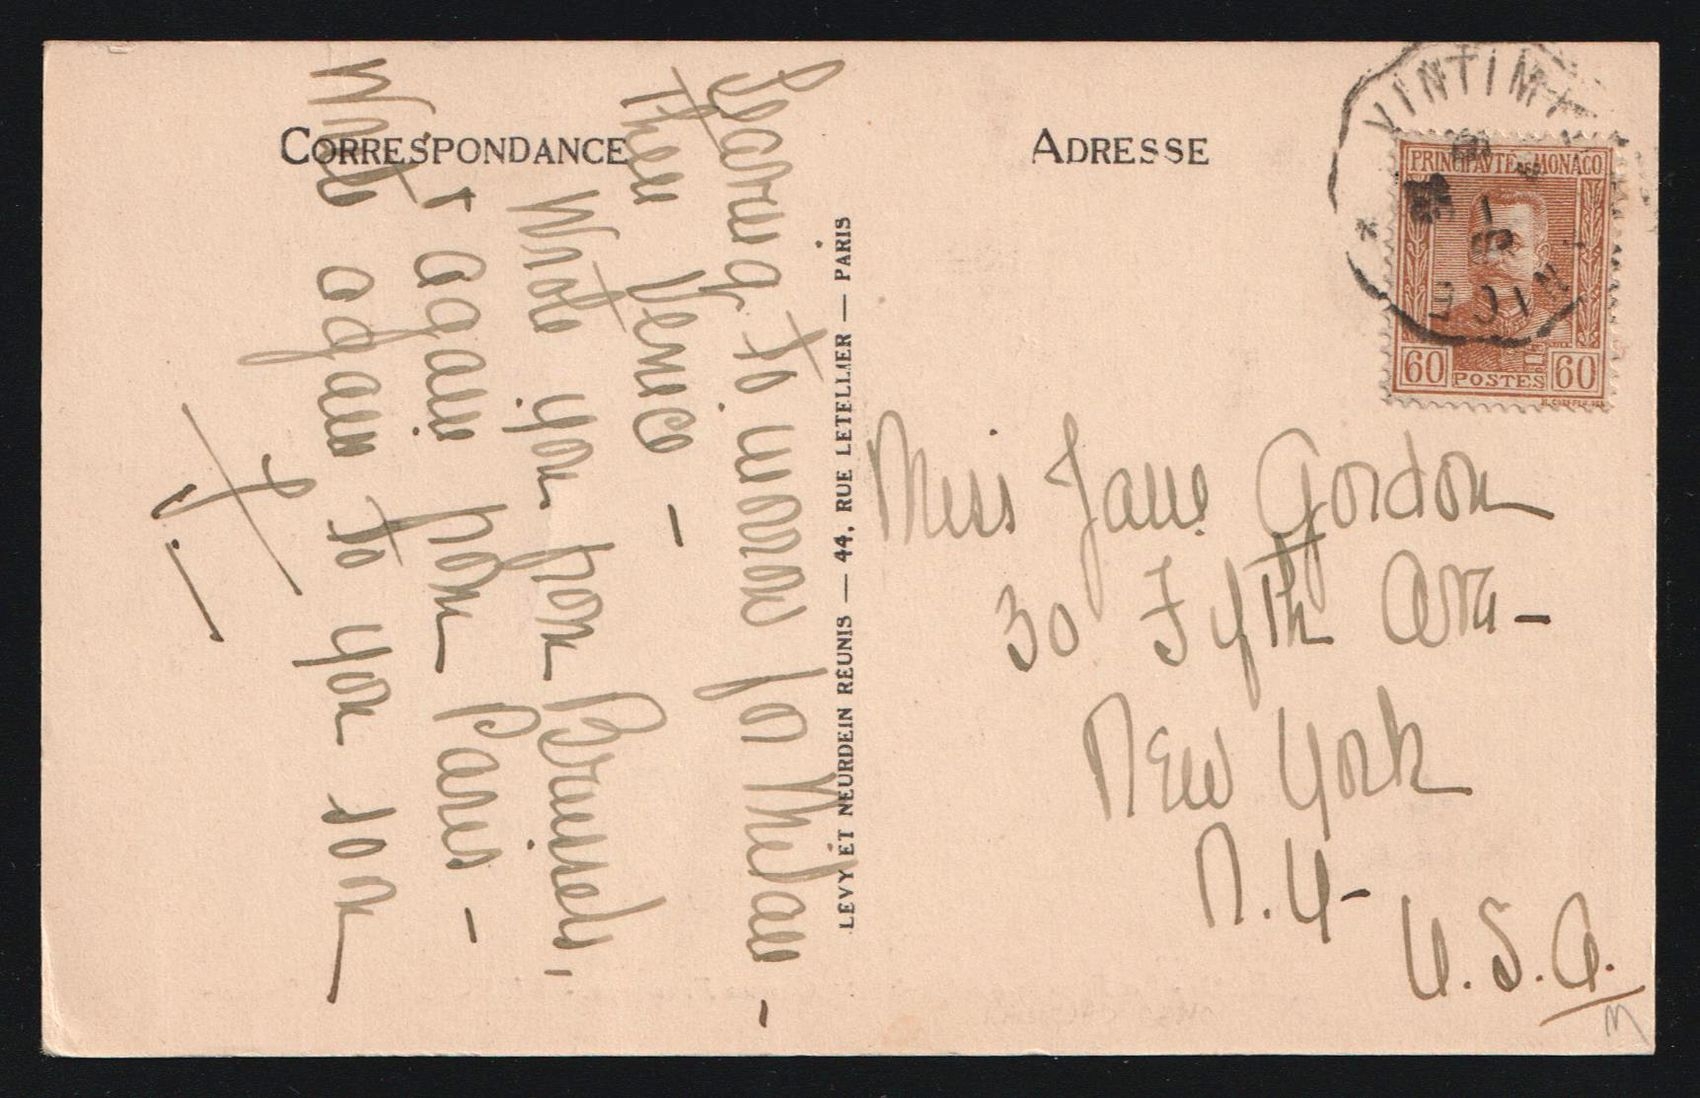 CORRESPONDANCE
ADRESSE
Leaving to-morrow for Milan -
Then Venice -
Wrote you from Brussels,
+ again from Paris -
Write again to you soon
J.
LEVY ET NEURDEIN RÉUNIS — 44, RUE LETELLIER — PARIS
VINTIMI
NICE
PRINCIPAVTE DE MONACO
60 POSTES 60
Miss Jane Gordon
30 Fifth Ave -
New York
N.Y-
U.S.A.
3